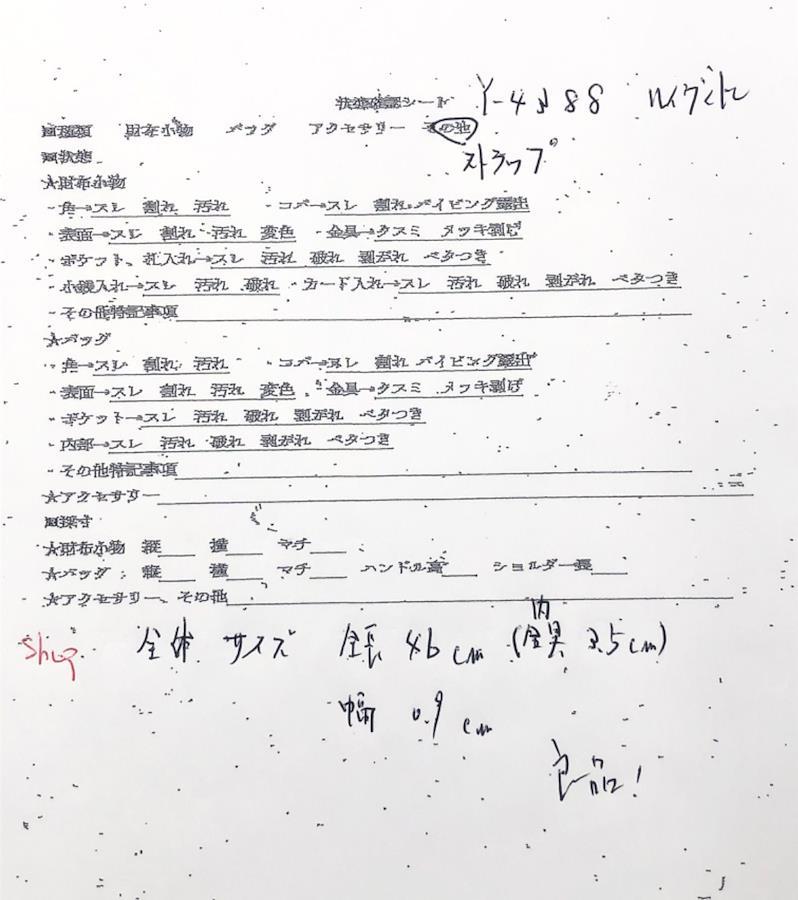 状態確認シート Y-4388 ルイヴィトン
■種類 財布小物 バッグ アクセサリー その他
■状態 ストラップ
★財布小物
・角→スレ 割れ 汚れ ・コバ→スレ 割れ パイピング露出
・表面→スレ 割れ 汚れ 変色 ・金具→クスミ メッキ剥げ
・ポケット、札入れ→スレ 汚れ 破れ 剥がれ ベタつき
・小銭入れ→スレ 汚れ 破れ ・カード入れ→スレ 汚れ 破れ 剥がれ ベタつき
・その他特記事項
★バッグ
・角→スレ 割れ 汚れ ・コバ→スレ 割れ パイピング露出
・表面→スレ 割れ 汚れ 変色 ・金具→クスミ メッキ剥げ
・ポケット→スレ 汚れ 破れ 剥がれ ベタつき
・内部→スレ 汚れ 破れ 剥がれ ベタつき
・その他特記事項
★アクセサリー
■採寸
★財布小物 縦 横 マチ
★バッグ 縦 横 マチ ハンドル高 ショルダー長
★アクセサリー、その他
全体 サイズ 全長 46cm (内金具 3.5cm)
幅 0.9cm
良品!